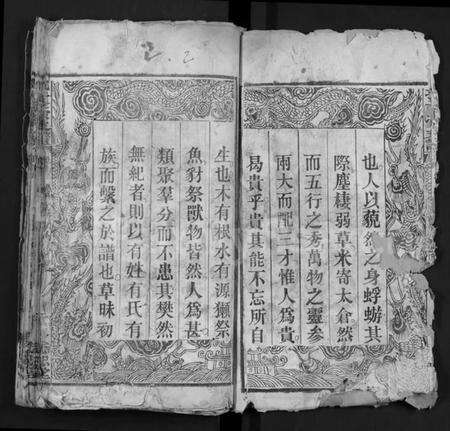 也人以藐然之身蜉蝣其
際塵棲弱草米寄太倉然
而五行之秀萬物之靈參
兩大而配三才惟人爲貴
曷貴乎貴其能不忘所自
生也木有根水有源獺祭
魚豺祭獸物皆然人爲甚
類聚羣分而不患其樊然
無紀者則以有姓有氏有
族而繫之於譜也草昧初